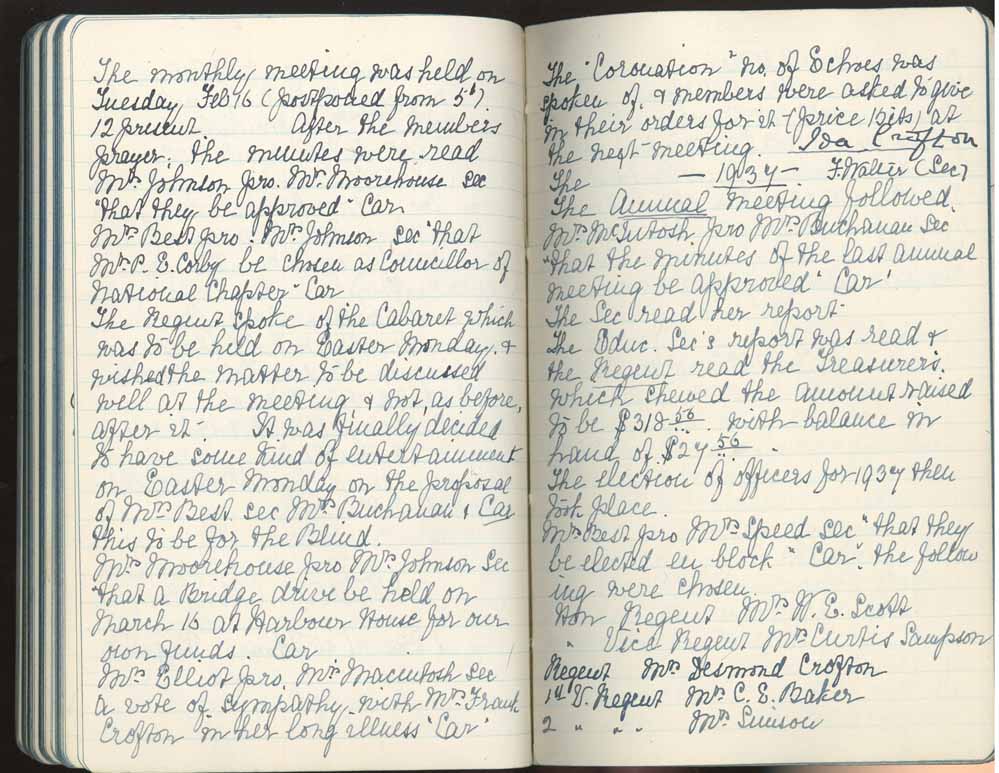 The monthly meeting was held on
Tuesday Feb 16 (postponed from 5th).
12 present. After the members
prayer, the minutes were read
Mrs Johnson pro. Mrs Moorehouse sec
"that they be approved" Car
Mrs Best pro. Mrs Johnson sec "that
Mrs P. E. Corby be chosen as Councillor of
National Chapter" Car
The Regent spoke of the Cabaret which
was to be held on Easter Monday, &
wished the matter to be discussed
well at the meeting, & not, as before,
after it. It was finally decided
to have some kind of entertainment
on Easter Monday on the proposal
of Mrs Best. sec Mrs Buchanan & Car
this to be for the Blind.
Mrs Moorehouse pro Mrs Johnson Sec
"that a Bridge drive be held on
March 16 at Harbour House for our
own funds Car
Mrs Elliot pro. Mrs Macintosh sec
a vote of sympathy with Mrs Frank
Crofton in her long illness "Car"
The "Coronation" no. of Echoes was
spoken of, & members were asked to give
in their orders for it (price 12cts) at
the next meeting. Ida Crofton
The — 1937 — F. Walter (Sec)
The Annual meeting followed.
Mrs McIntosh pro Mrs Buchanan Sec
"that the minutes of the last annual
meeting be approved" Car'
The Sec read her report
The Educ. Sec's report was read &
the Regent read the Treasurer's.
which shewed the amount raised
to be $318.56 with balance in
hand of $27.56.
The election of officers for 1937 then
took place.
Mrs Best pro Mrs Speed Sec "that they
be elected en block" Car". the follow
ing were chosen.
Hon Regent Mrs W. E. Scott
" Vice Regent Mrs Curtis Sampson
Regent Mrs Desmond Crofton
1st V. Regent Mrs C. E. Baker
2 " " " Mrs Simson